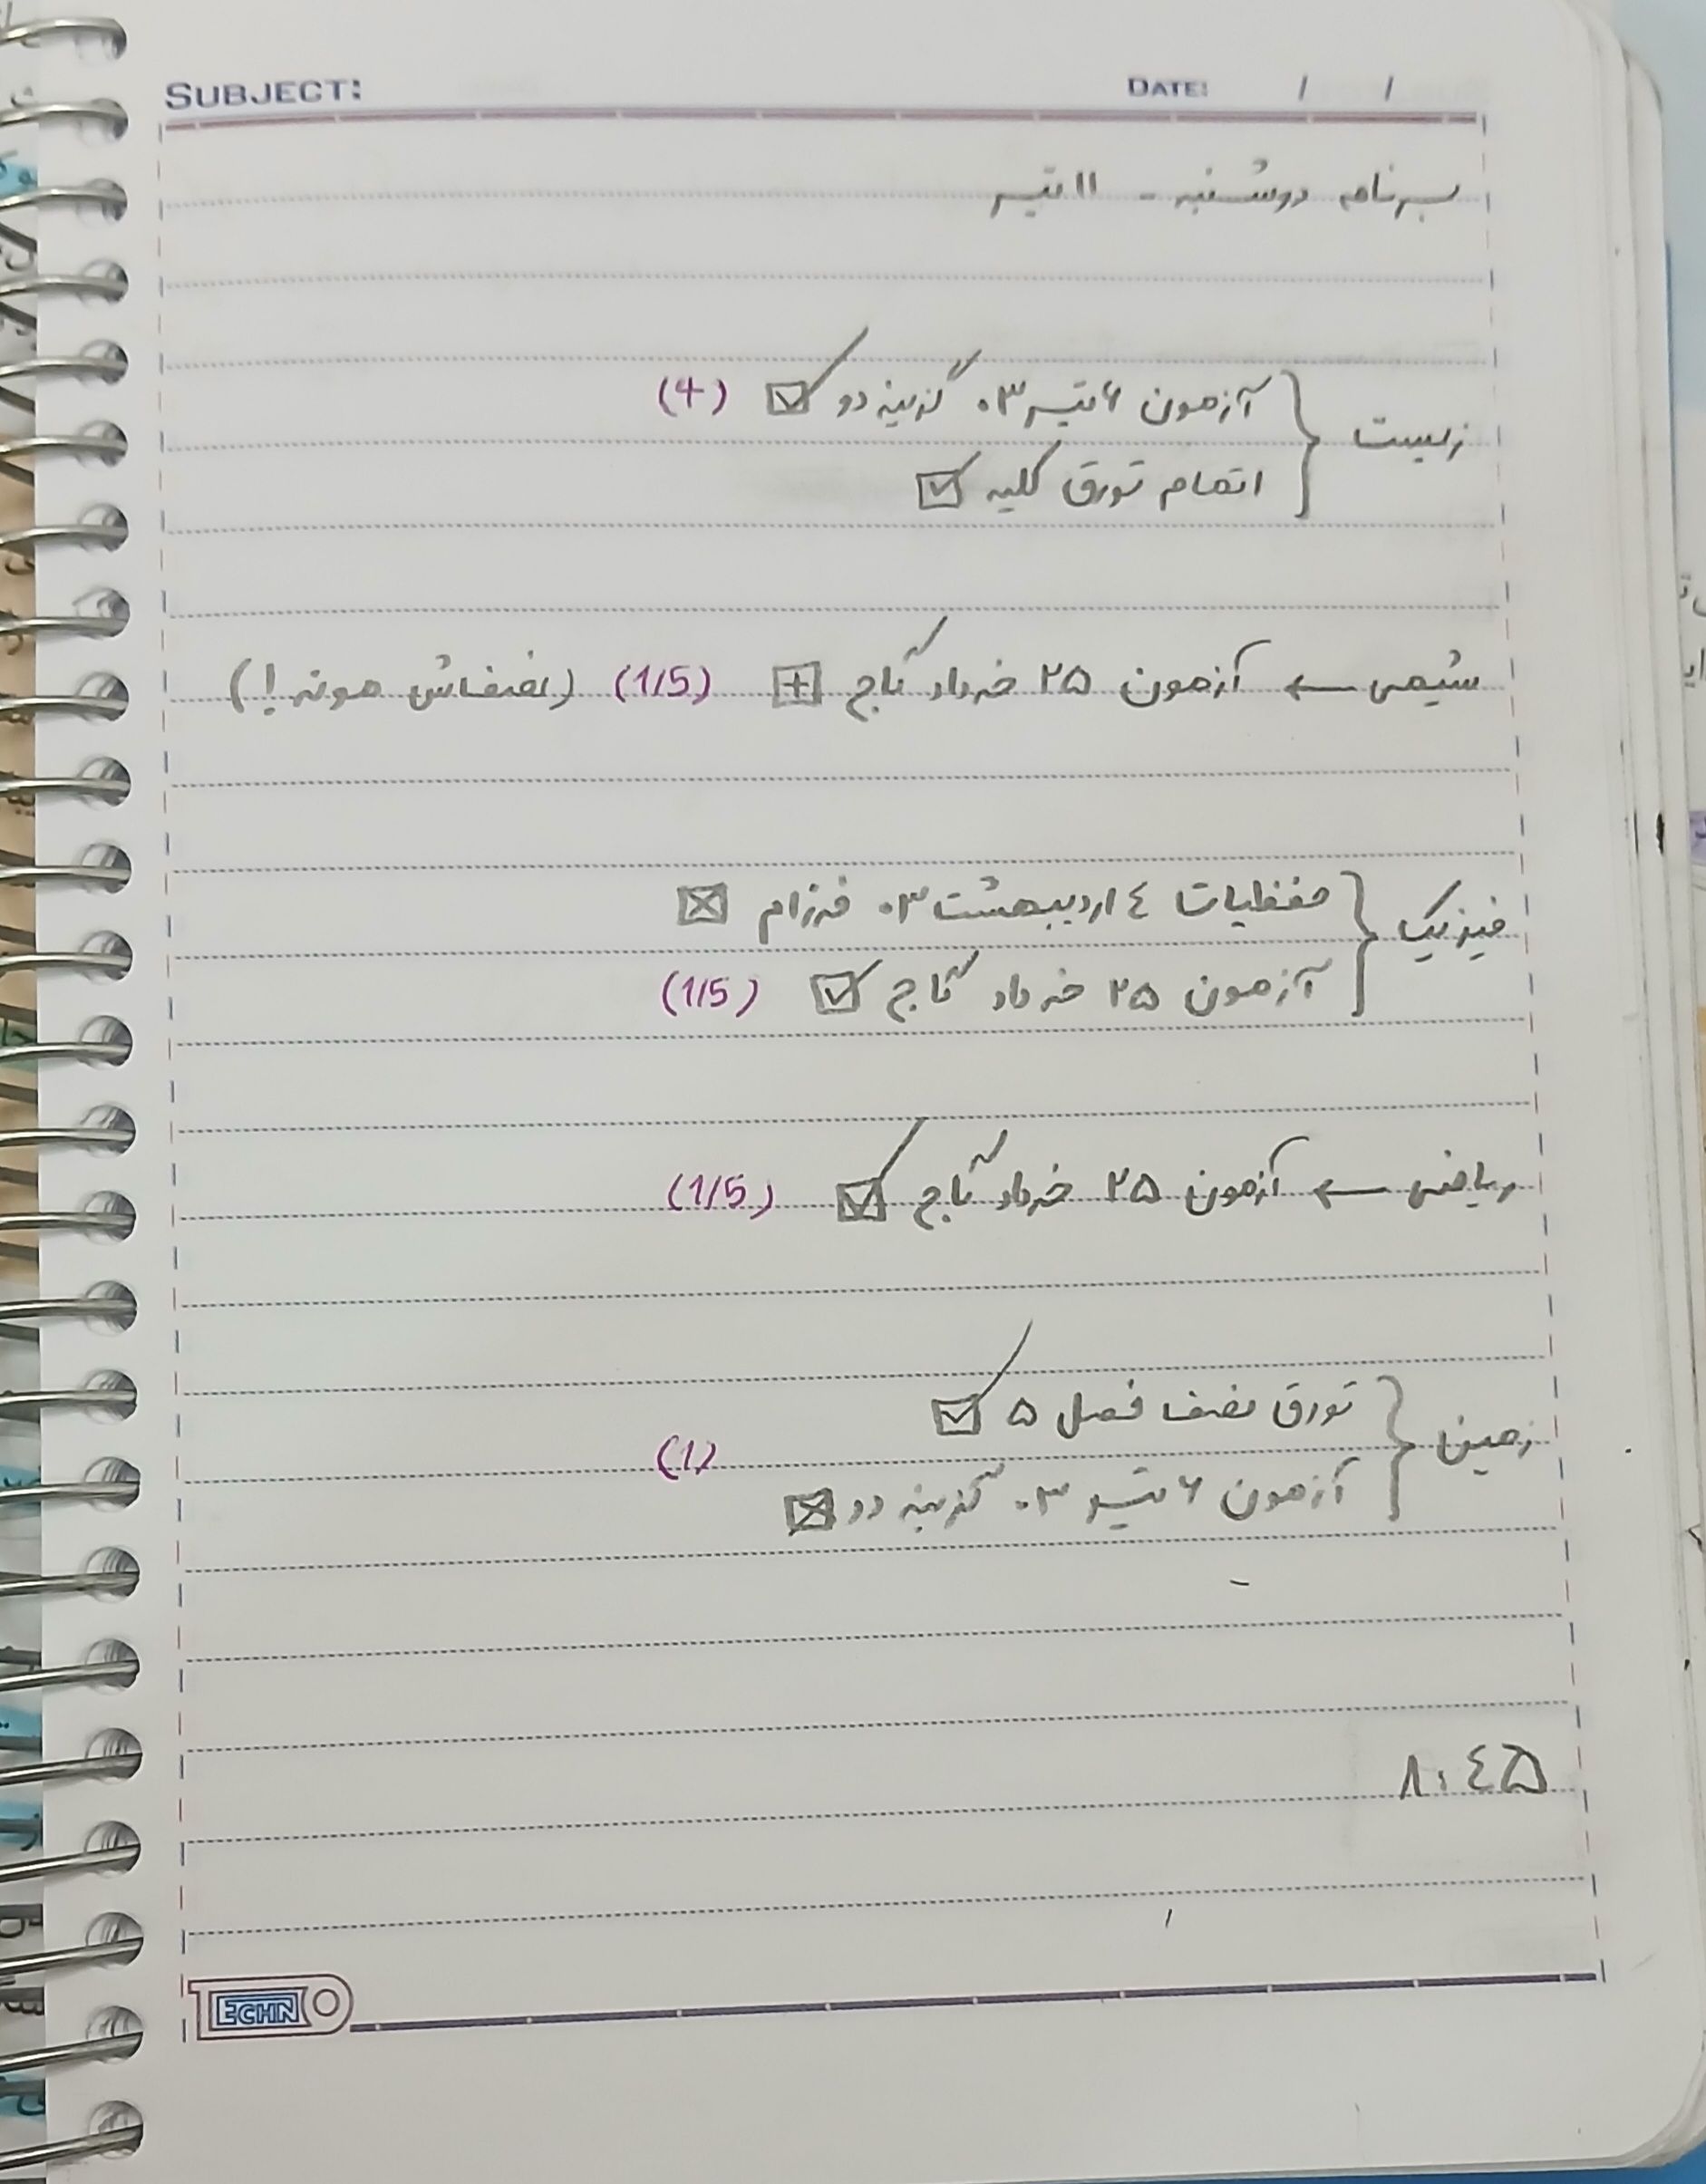 SUBJECT: DATE: / /
برنامه دوشنبه - ۱۱ تیر
زیست { آزمون ۶ تیر ۰۳ گزینه دو ☑ (4)
اتمام تورق کلیه ☑
شیمی ← آزمون ۲۵ خرداد تاج ⊞ (1/5) (نصفش مونه!)
فیزیک { حفظیات ۴ اردیبهشت ۰۳ فرزام ☒
آزمون ۲۵ خرداد تاج ☑ (1/5)
ریاضی ← آزمون ۲۵ خرداد تاج ☑ (1/5)
زمین { تورق نصف فصل ۵ ☑
(1)
آزمون ۶ تیر ۰۳ گزینه دو ☒
۸:۴۵
TECHNO